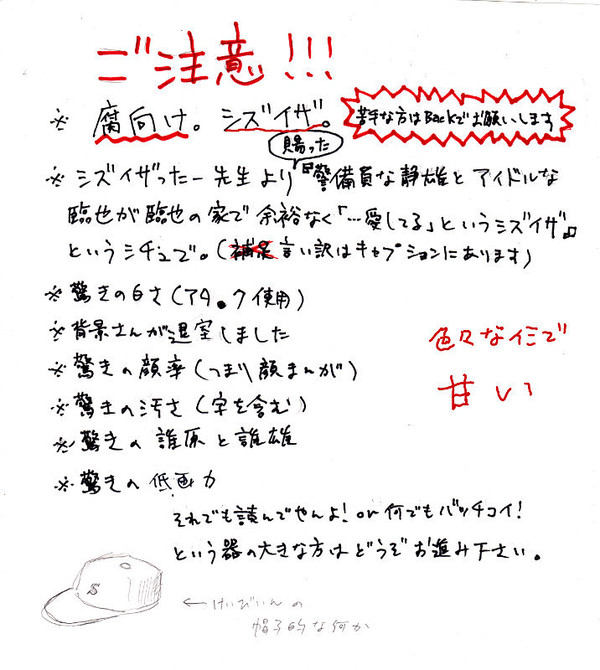 ご注意!!!
※ 腐向け。シズイザ。
苦手な方はBackでお願いします
賜った
※ シズイザったー先生より『警備員な静雄とアイドルな
臨也が臨也の家で余裕なく「…愛してる」というシズイザ』
というシチュで。(補足言い訳はキャプションにあります)
※ 驚きの白さ(アタ。ク使用)
※ 背景さんが退室しました
※ 驚きの顔率(つまり顔まんが)
※ 驚きの汚さ(字を含む)
※ 驚きの誰原と誰雄
※ 驚きの低画力
色々な仁で
甘い
それでも読んでやんよ! or 何でもバッチコイ!
という器の大きな方はどうぞお進み下さい。
S
←けいびいんの
帽子的な何か